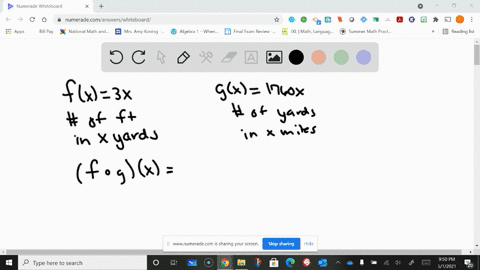 Numerade Whiteboard
numerade.com/answers/whiteboard/
Apps
Bill Pay
National Math and
Mrs. Amy Koning
Algebra 1 - Wheneb
Final Exam Review
IXL | Math, Language
Summer Math Pract
Reading list
f(x)=3x
# of ft
in x yards
(f∘g)(x)=
g(x)=1760x
# of yards
in x miles
www.numerade.com is sharing your screen.
Stop sharing
Hide
Type here to search
9:50 PM
5/1/2021